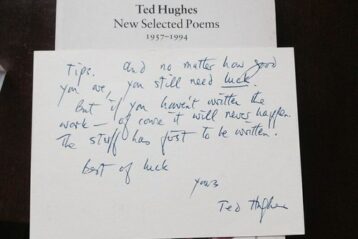 Ted Hughes
New Selected Poems
1957–1994
tips. And no matter how good
you are, you still need luck.
But if you haven't written the
work — of course it will never happen.
The stuff has just to be written.
Best of luck
yours
Ted Hughes